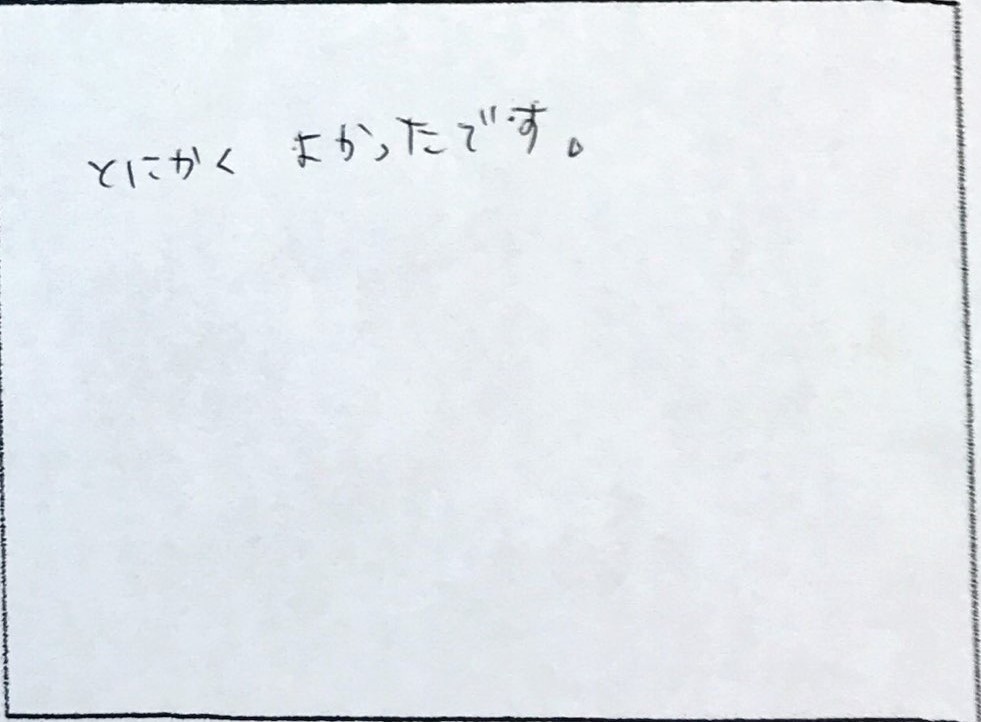 とにかく よかったです。